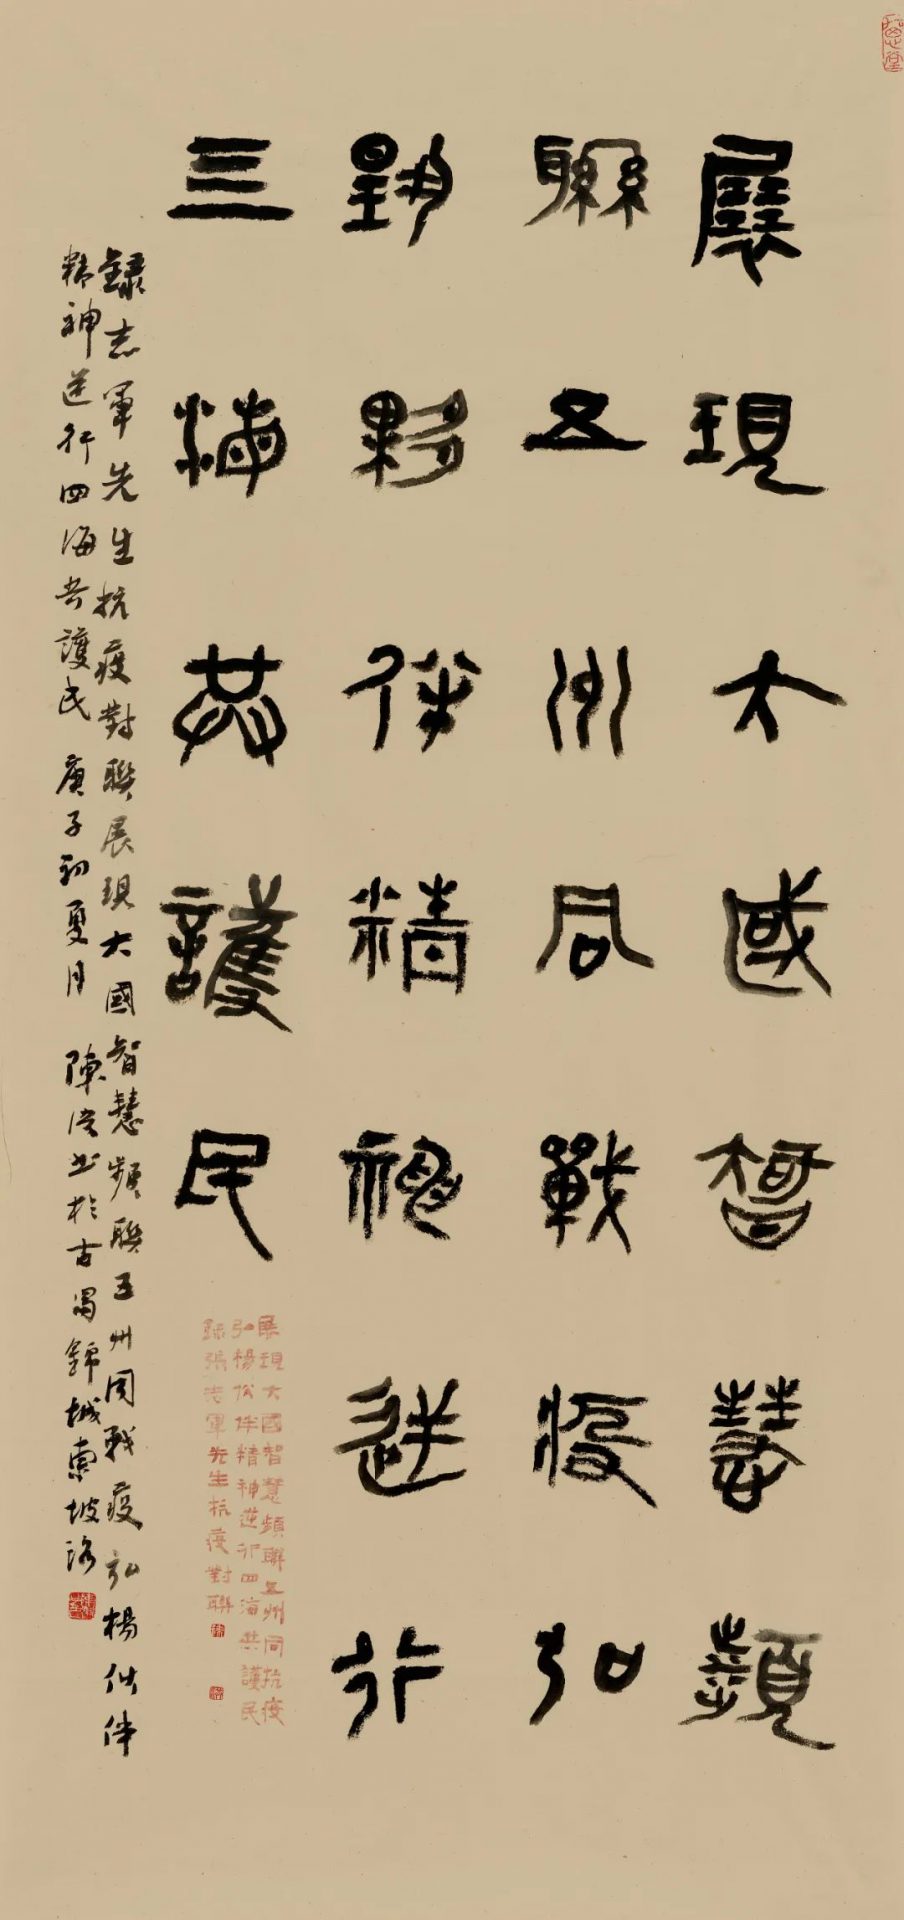 展現大國智慧頻
聯五州同戰疫弘
揚夥伴精神逆行
亖海共護民
錄志軍先生抗疫對聯展現大國智慧頻聯五州同戰疫弘楊伙伴
精神逆行四海共護民 庚子初夏月 陳 書於古蜀錦城
展現大國智慧頻聯五州同抗疫
弘楊伙伴精神逆行四海共護民
錄張志軍先生抗疫對聯